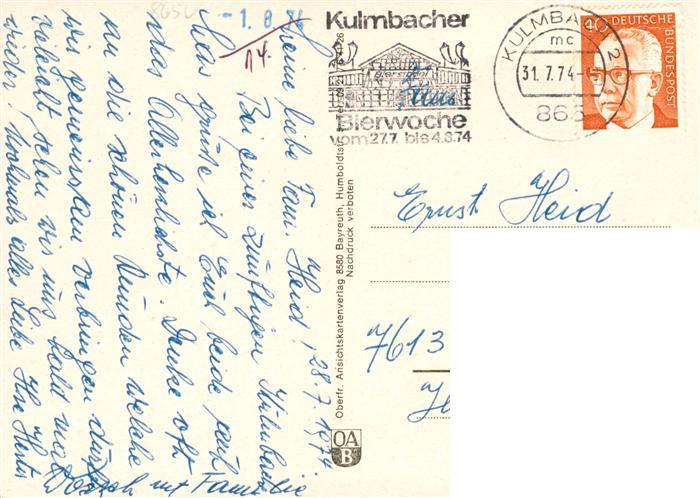 - 1. 8. 74
14.
Kulmbacher
Bierwoche
vom 27.7. bis 4.8.74
KULMBACH 2
mc
31.7.74
865
40
DEUTSCHE
BUNDESPOST
28.7.1974
Meine liebe Fam. Heid!
Bei einer zünftigen Kulmbacher
grüße ich Euch beide
das Allerherzlichste. Denke oft
an die schönen Stunden welche
wir gemeinsam verbringen durften
vielleicht sehen wir uns bald mal
wieder, nochmals alles Liebe
mit Familie
Oberfr. Ansichtskartenverlag 8580 Bayreuth, Humboldtstr.
Nachdruck verboten
OA
B
Ernst Heid
7613